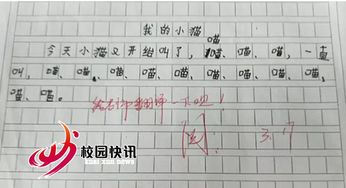 我的小猫
今天小猫又开始叫了，喵、喵、喵，一直
叫，喵、喵、喵、喵、喵、喵、喵、喵、喵、
喵、喵。
给老师翻译一下吧！
阅 3.17
校园快讯
xiao yuan kuai xun